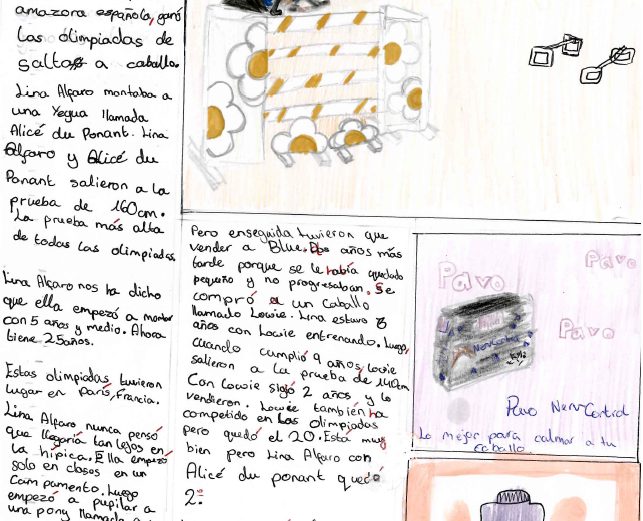 amazora española, ganó
las olimpiadas de
saltos a caballo.
Lina Alfaro montaba a
una Yegua llamada
Alicé du Ponant. Lina
Alfaro y Alicé du
Ponant salieron a la
prueba de 160cm.
La prueba más alta
de todas las olimpiadas
Lina Alfaro nos ha dicho
que ella empezó a montar
con 5 años y medio. Ahora
tiene 25años.
Estas olimpiadas tuvieron
lugar en París, Francia.
Lina Alfaro nunca pensó
que llegaría tan lejos en
la hípica. Ella empezó
solo en clases en un
Campamento. Luego
empezó a pupilar a
una pony llamada
Pero enseguida tuvieron que
vender a Blue. Dos años más
tarde porque se le había quedado
pequeño y no progresaban. Se
compró a un caballo
llamado Lowie. Lina estuvo 8
años con Lowie entrenando. Luego,
cuando cumplió 9 años, Lowie
salieron a la prueba de 140cm
Con Lowie sigió 2 años y lo
vendieron. Lowie también ha
competido en Las Olimpiadas
pero quedó el 20. Está muy
bien pero Lina Alfaro con
Alicé du ponant quedó
2º
Pavo
Pavo
Pavo
NervControl
Pavo NervControl
Lo mejor para calmar a tu
caballo.